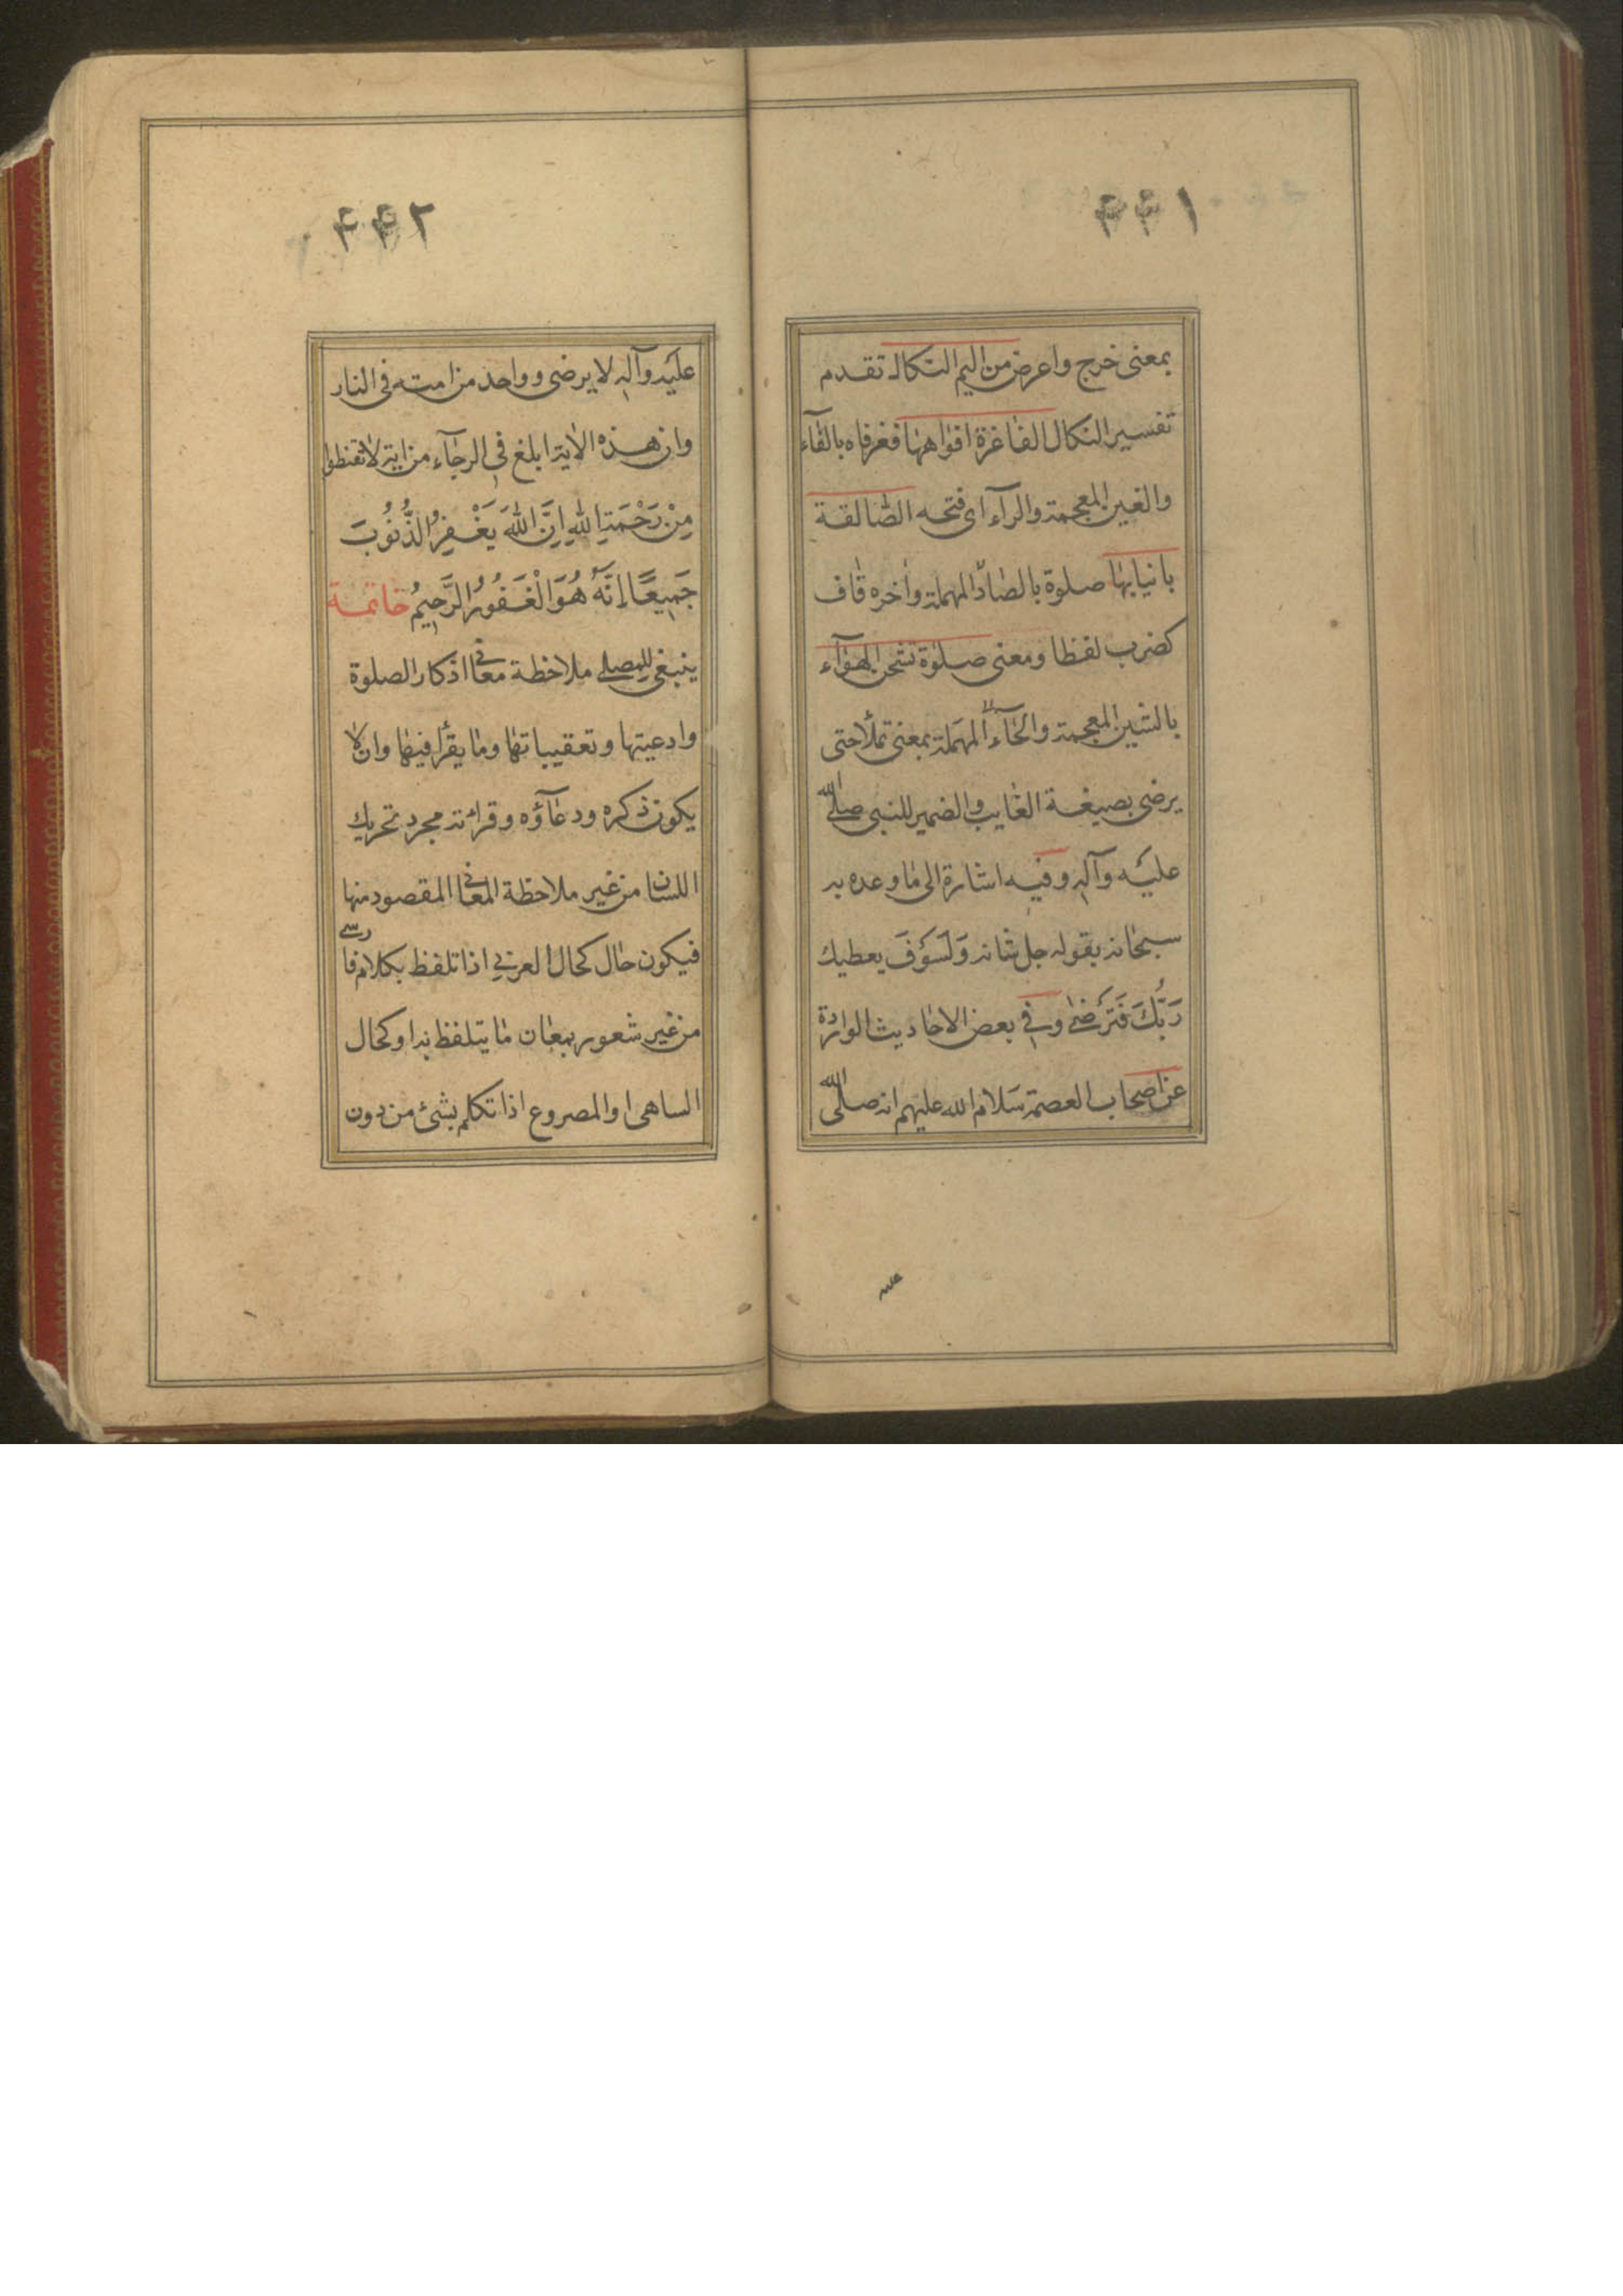 ۴۴۱
بمعنى خرج واعرض من اليم النكال تقدم
تفسير النكال الفاغرة افواهها فغرفاه بالفآء
والغين المعجمة والرآء اى فتحه الصالقة
بانيابها صلوة بالصاد المهملة واخره قاف
كضرب لفظا ومعنى صلوة تشحن الهوآء
بالشين المعجمة والحآء المهملة بمعنى تملأ حتى
يرضى بصيغة الغايب والضمير للنبى صلى الله
عليه وآله وفيه اشارة الى ما وعده به
سبحانه بقوله جل شانه وَلَسَوْفَ يعطيك
رَبُّكَ فَتَرْضىٰ وفي بعض الاحاديث الواردة
عن اصحاب العصمة سلام الله عليهم انه صلى الله
عليه
۴۴۲
عليه وآله لا يرضى وواحد من امته فى النار
وان هذه الاية ابلغ فى الرجآء من اية لا تقنطوا
مِنْ رَحْمَةِ اللهِ اِنَّ اللهَ يَغْفِرُ الذُّنُوبَ
جَمِيعًا اِنَّهُ هُوَ الْغَفُورُ الرَّحِيمُ خاتمة
ينبغى للمصلي ملاحظة معانى اذكار الصلوة
وادعيتها وتعقيباتها وما يقرأ فيها وان لا
يكون ذكره ودعآؤه وقرائته مجرد تحريك
اللسان من غير ملاحظة المعانى المقصود منها
فيكون حال كحال العربي اذا تلفظ بكلام فارسى
من غير شعور بمعان ما يتلفظ به او كحال
الساهى او المصروع اذا تكلم بشئ من دون